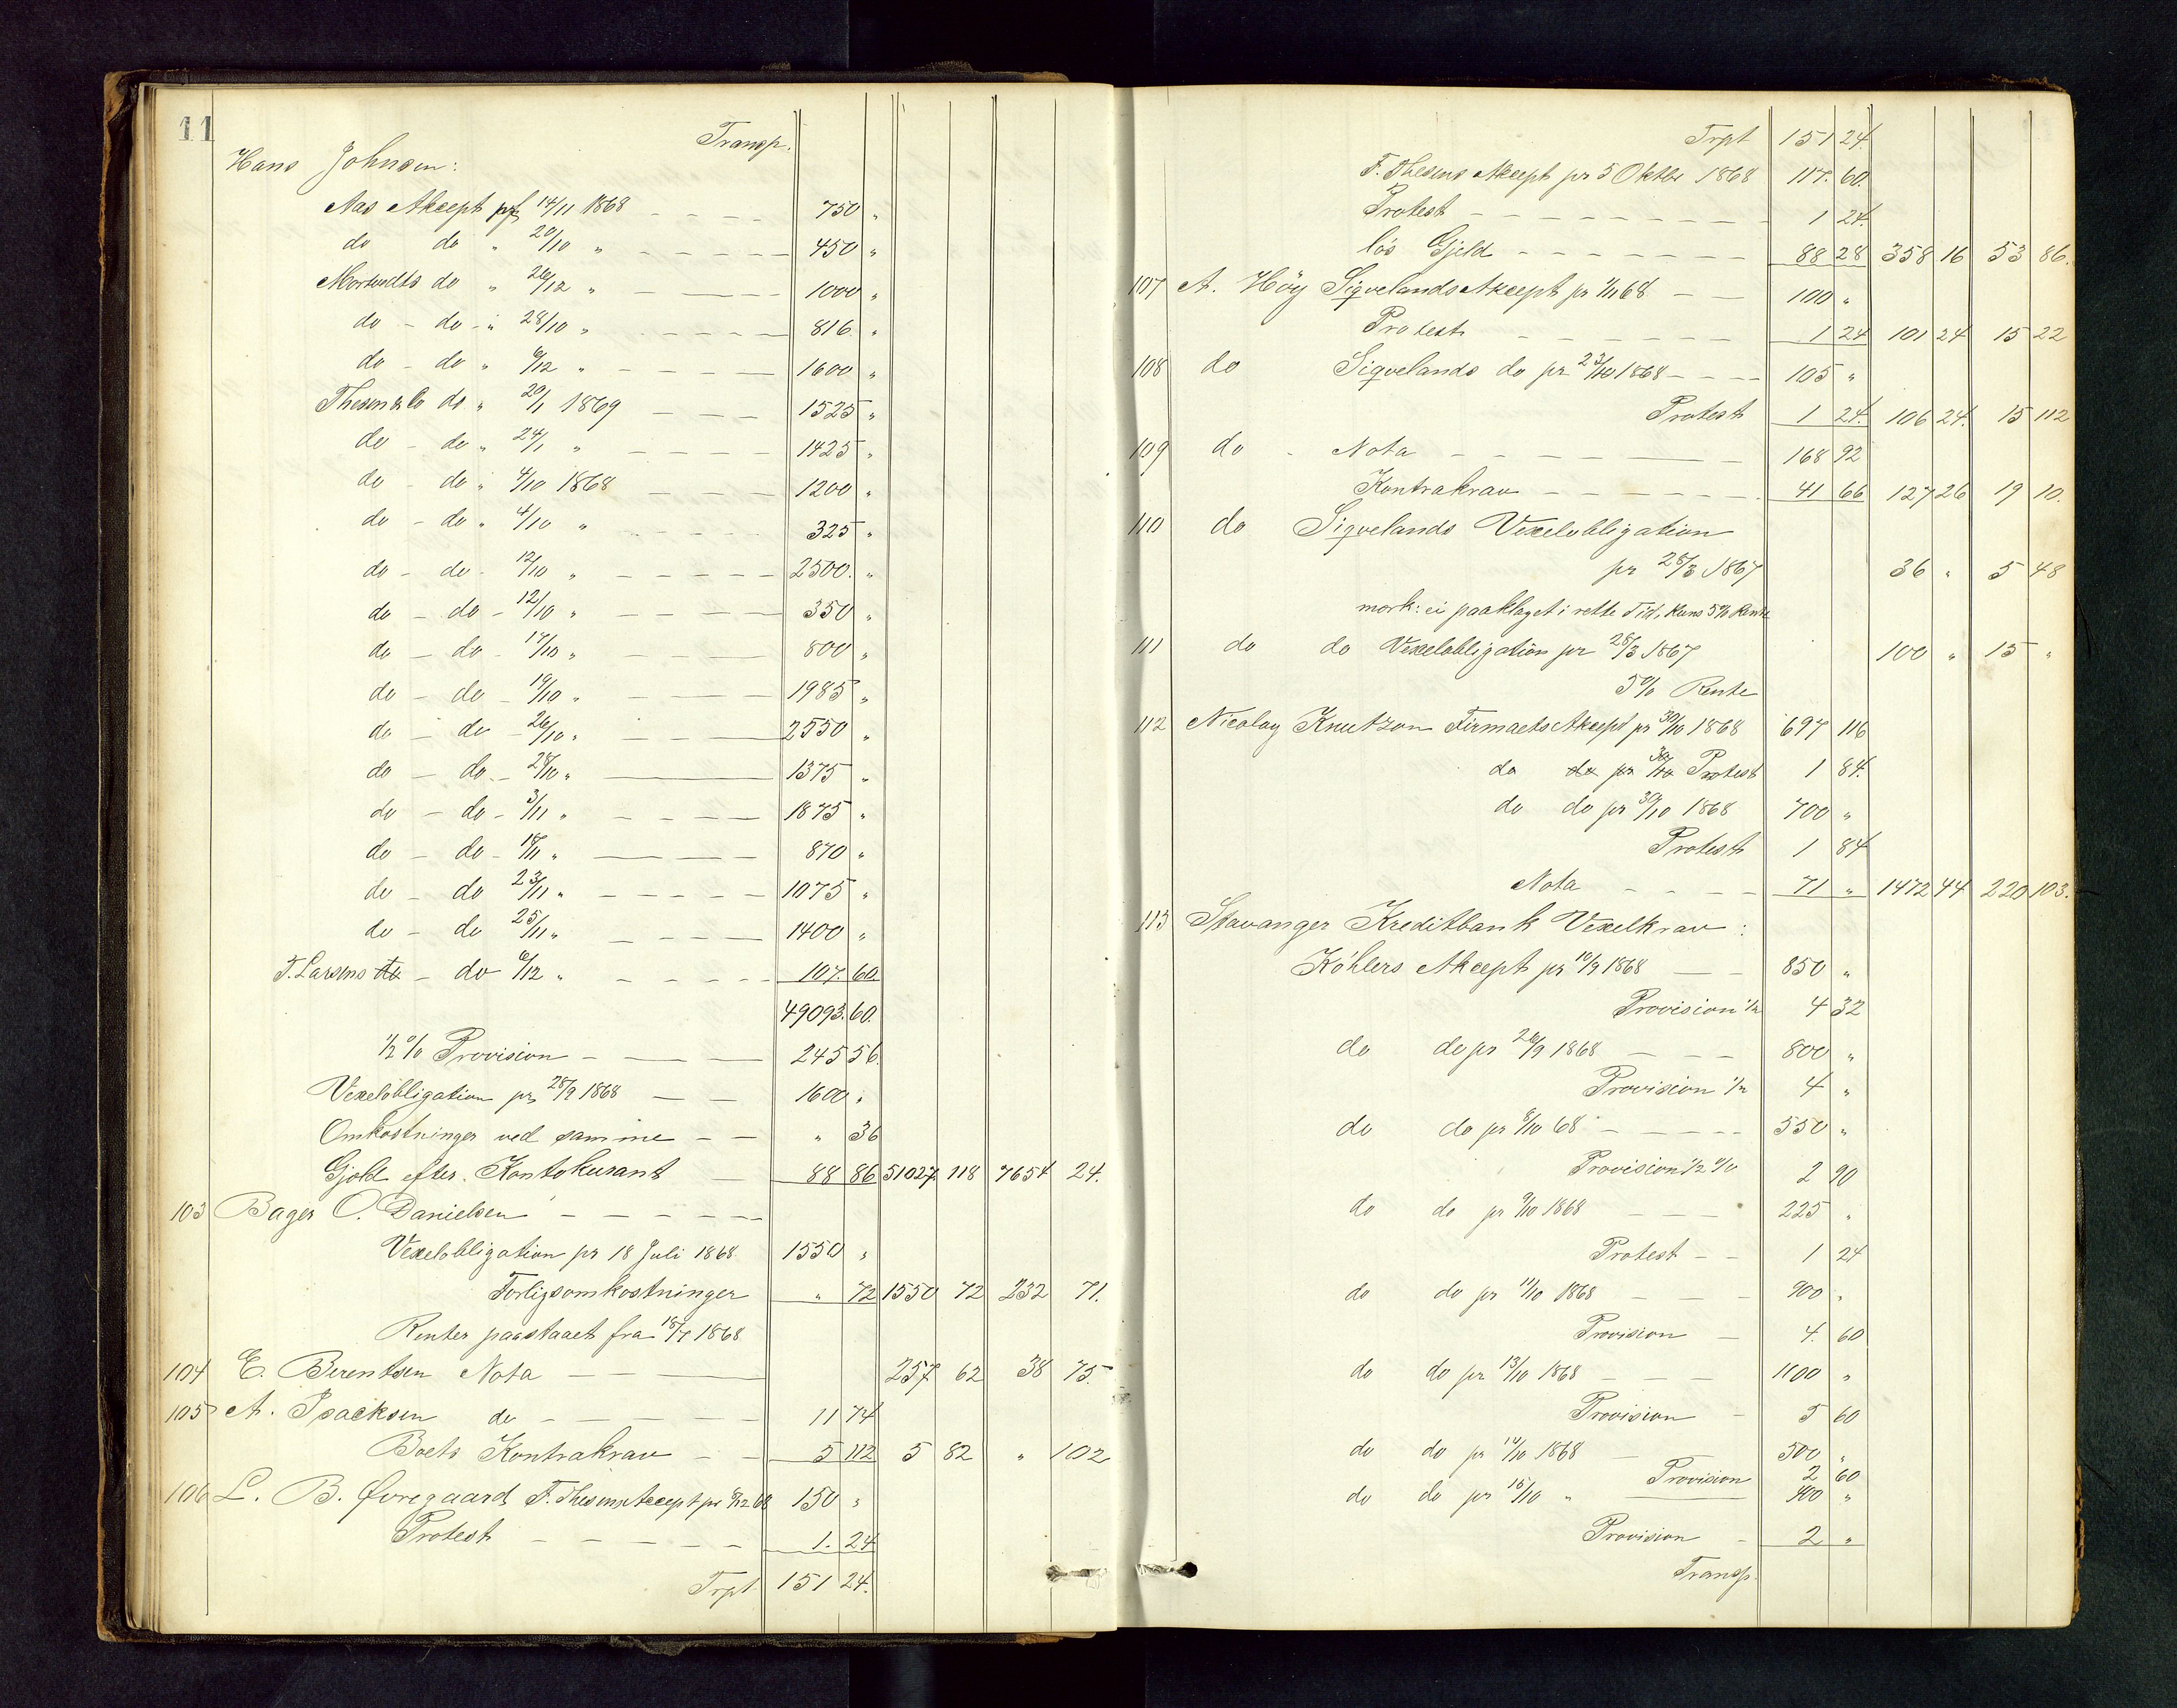 11
Transp.
Hans Johnsen:
Aas Akcept pr 14/11 1868 - - - - 750 "
do do " 20/10 " - - - - - 450 "
Mortvedts do " 26/12 " - - - - 1000 "
do - do - " 28/10 " - - - - - 816. "
do - do " 6/12 " - - - - - 1600 "
Thesen & Co do " 20/1 1869 - - - 1525 "
do - do " 24/1 " - - - - - 1425 "
do - do " 4/10 1868 - - - - 1200 "
do - do " 4/10 " - - - - - 325 "
do - do - 12/10 " - - - - - 2500. "
do - do - 12/10 " - - - - - 350 "
do - do - 17/10 " - - - - 800 "
do - do - 19/10 " - - - - 1985 "
do - do - 26/10 " - - - - 2550 "
do - do - 28/10 " - - - - 1375 "
do - do - 3/11 " - - - - - 1875 "
do - do - 18/11 " - - - - 870 "
do - do 23/11 " - - - - - 1075 "
do - do 25/11 " - - - - 1400 "
T. Larsens do - do 6/12 " - - - - - 107. 60.
49093. 60.
1/2 % Provision - - - 245 56.
Vexelobligation pr 28/9 1868 - - 1600 "
Omkostninger ved samme - - " 36
Gjeld efter Kontokurant - 88 86 51027. 118 7654 24.
103 Bager O. Danielsen - - - - - -
Vexelobligation pr 18 Juli 1868 1550 "
Forligsomkostninger " 72 1550 72 232 71.
Renter paastaaet fra 18/7 1868
104 E. Berentsen Nota - - - - 257 62 38 75.
105 A. Isacksen do - - - - - 11 74
Boets Kontrakrav - - 5 112 5 82 " 102
106 L. B. Øvregaard F. Thesens Accept pr 6/12 68 150 "
Protest - - - - - 1. 24
Trpt 151 24.
Trpt 151 24.
F. Thesens Akcept pr 5 Oktbr 1868 117. 60.
Protest - - - - - - - - 1 24.
lös Gjeld - - - - - - - 88 28 358 16 53 86.
107 A. Höy Siqvelands Akcept pr 1/11 68 - - 100 "
Protest - - - - - - 1 24 101 24 15 22
108 do Siqvelands do pr 23/10 1868 - - - 105 "
Protest 1 24. 106 24. 15 112
109 do - Nota - - - - - - 168 92
Kontrakrav - - - - - - 41 66 127 26 19 10.
110 do Siqvelands Vexelobligation
pr 28/3 1867 36 " 5 48
mærk: ei paaklaget i rette Tid, kuns 5% Rente
111 do do Vexelobligation pr 28/3 1867 100 " 15 "
5% Rente
112 Nicolay Knutzon Firmaets Akcept pr 30/10 1868 697 116
do do pr 30/10 Protest 1 84.
do do pr 30/10 1868 700 "
Protest 1 84
Nota - - - - 71 " 1472 44 220 103.
113 Stavanger Kreditbank Vexelkrav:
Köhlers Akcept pr 10/9 1868 - - 850 "
Provision 1/2 4 32
do do pr 26/9 1868 - - - 800 "
Provision 1/2 4 "
do do pr 8/10 68 - - - - - 550 "
Provision 1/2 % 2 90
do do pr 9/10 1868 - - - 225 "
Protest - - 1 24
do do pr 11/10 1868 - - - 900 "
Provision - 4. 60
do do pr 13/10 1868 - - - 1100 "
Provision - 5 60
do do pr 14/10 1868 - 500 "
Provision 2 60
do do pr 15/10 " 400 "
Provision - 2 "
Transp.